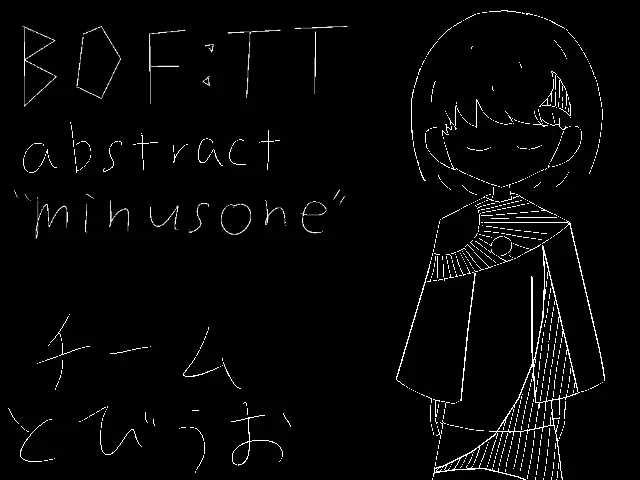 BOF:TT
abstract
"minusone"
チーム
とびうお